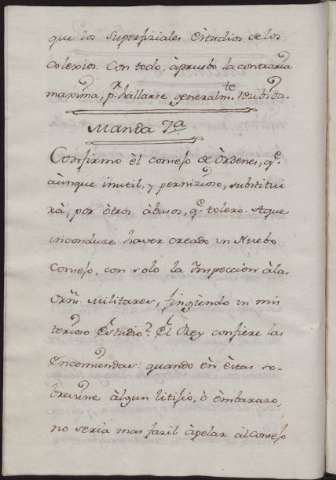 que los superfiziales Estudios de los
Colexios. Con todo, àpruebo la contraria
maxima, pr. hallarse generalmte. rezibida.
Manda 7a
Confirmo èl consejo de Òrdenes, qe.
àunque inutil, y pernizioso, substitui
rà, por òtros àbusos, qe. tolero. Aque
inconduze haver creado un Nuebo
Consejo, con solo la Inspeccion àlas
Orns. Militares, fingiendo un mis
terioso Estudio? El Rey confiere las
Encomiendas: quando èn èstas so-
breviene àlgun litijio, ò èmbarazo,
no seria mas fazil àpelar àl Consejo